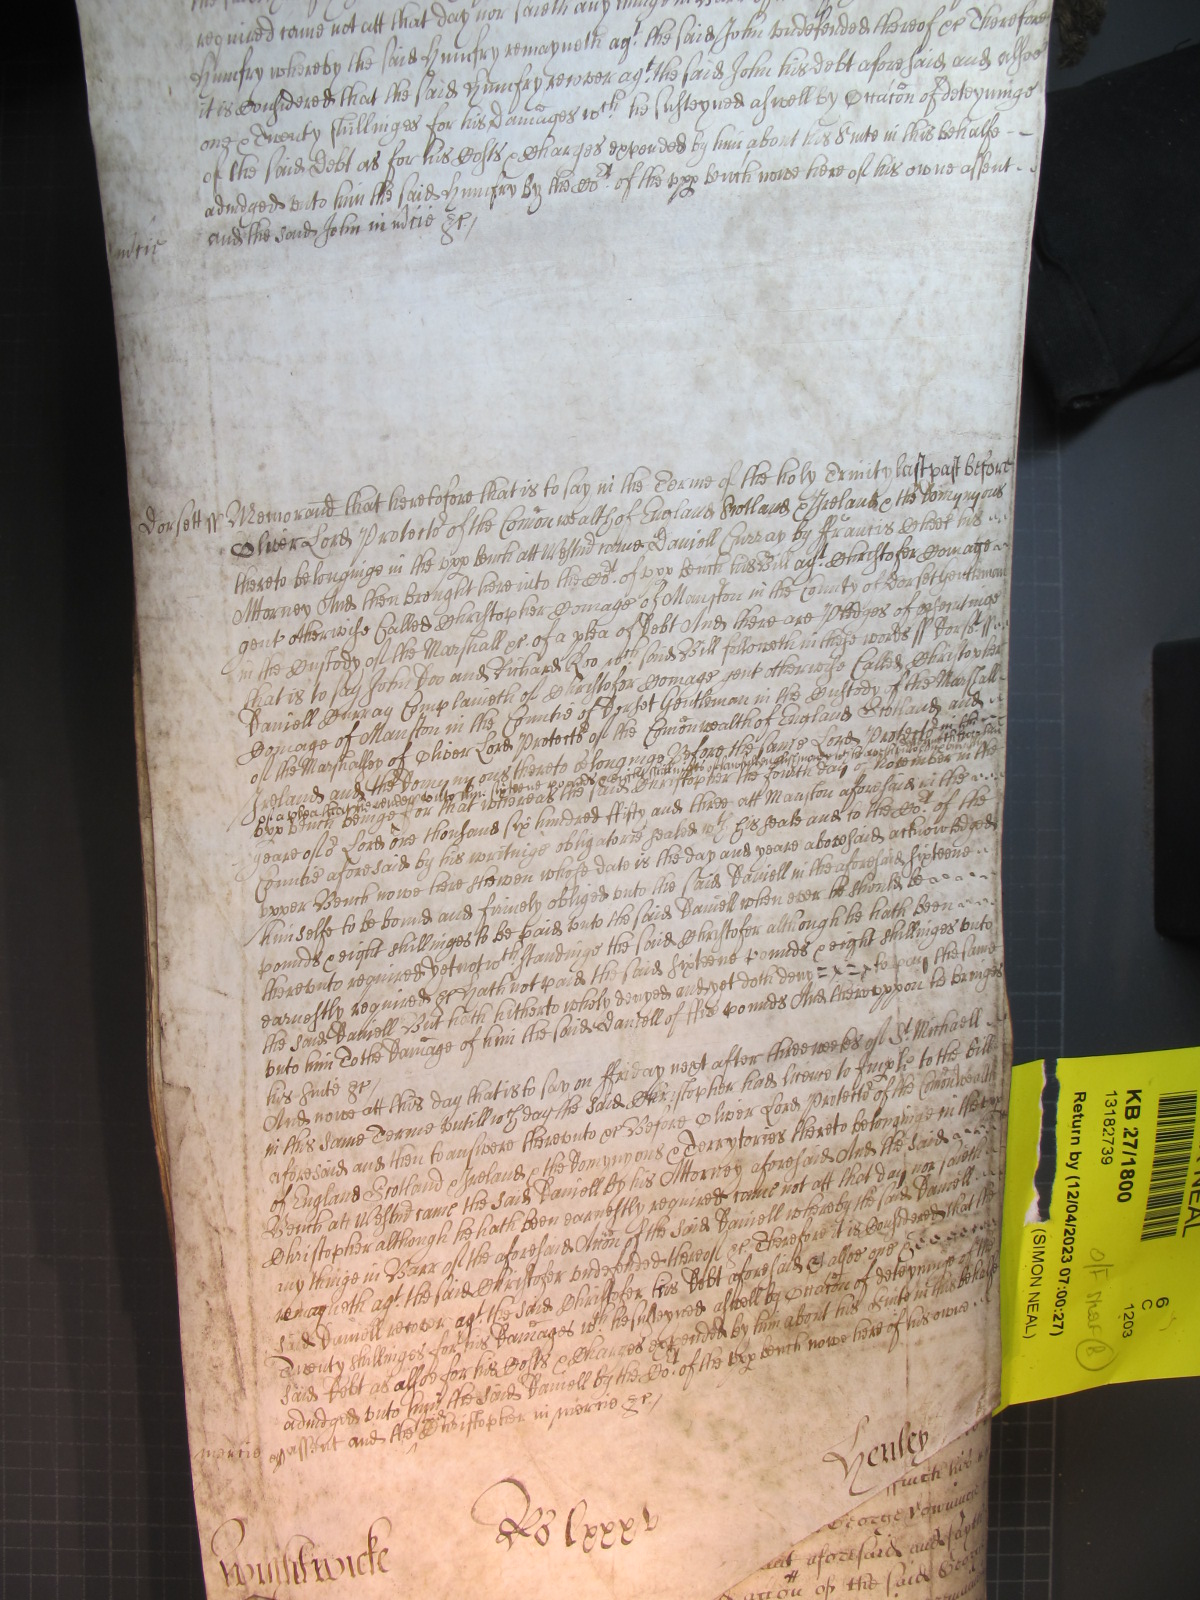 required came not att that day nor saieth any thinge in
Humfry whereby the said Humfry remayneth agt. the said John undefended thereof &c Therefore
it is Considered that the said Humfry recover agt. the said John his debt aforesaid and alsoe
one & Twenty shillinges for his Damages wch. he susteyned aswell by Occacōn of deteyninge
of the said Debt as for his Costs & Charges expended by him about his Suite in this behalfe
adiudged unto him the said Humfry by the Cot. of the upp bench nowe here of his owne assent
and the said John in mcie &c/
mcie
Dorsett ss Memorand that heretofore that is to say in the Terme of the holy Trinity last past before
Oliver Lord Protector of the Comonwealth of England Scotland & Ireland & the Domynyons
thereto belonginge in the upp bench att Westm̄ came Daniell Curray by ffrancis Cheek his
Attorney And then brought here into the Cot. of upp bench his Bill agt. Christofer Domage
gent otherwise Called Christopher Domage of Manston in the County of Dorset Gentleman
in the Custody of the Marshall &c. of a plea of Debt And there are Pledges of prosecutinge
that is to say John Doo and Richard Roo wch said Bill followeth in these words ss Dorss. ss
Daniell Curray Complaineth of Christofer Domage gent otherwise Called Christopher
Domage of Manston in the Countie of Dorset Gentleman in the Custody of the Marshall
of the Marshallsey of Oliver Lord Protector of the Comonwealth of England Scotland and
Ireland and the Domynyons thereto belonginge Before the same Lord Protector in the
of a plea that he render unto him sixteene pounds & eight shillinges of lawfull
upp bench beinge For that whereas the said Christopher the fourth day of November in the
yeare of or Lord one thousand six hundred ffifty and three att Manston aforesaid in the
Countie aforesaid by his writinge obligatorie sealed wth his seale and to the Cot. of the
upper Bench nowe here shewen whose date is the day and yeare abovesaid acknowledged
himselfe to be bound and firmely obliged unto the said Daniell in the aforesaid sixteene
pounds & eight shillinges to be paid unto the said Daniell when ever he should be
thereunto required yet notwthstandinge the said Christofer although he hath been
earnestly required &c hath not paid the said sixteene pounds & eight shillinges unto
the said Daniell But hath hitherto wholy denyed and yet doth deny to pay the same
unto him To the Damage of him the said Daniell of ffive pounds And thereuppon he bringes
his suite &c/
And nowe att this day that is to say on ffriday next after three weekes of St. Michaell
in this same Terme untill wch day the said Christopher had licence to Imple to the bill
aforesaid and then to answere thereunto &c Before Oliver Lord Protector of the Comonwealth
of England Scotland & Ireland & the Domynyons & Terrytories thereto belonginge in the upp
Bench att Westm̄ came the said Daniell by his Attorney aforesaid And the said
Christopher although he hath been earnestly required came not att that day nor saieth
any thinge in Barr of the aforesaid Accōn of the said Daniell whereby the said Daniell
remayneth agt. the said Christofer undefended thereof &c. Therefore it is Considered that the
said Daniell recover agt. the said Christofer his Debt aforesaid & alsoe one &
Twenty shillinges for his Damages wch he susteyned aswell by Occacōn of deteyninge of the
said Debt as alsoe for his Costs & Charges expended by him about his Suite in this behalfe
adiudged unto him the said Daniell by the Cot. of the upp bench nowe here of his owne
assent and the said Christopher in mercie &c/
mercie
Henley
Ro lxxxv
Wightwicke
aforesaid and
of the said George
KB 27/1800
13182739
Return by (12/04/2023 07:00:27)
(SIMON NEAL)
NEAL
6
C
1203